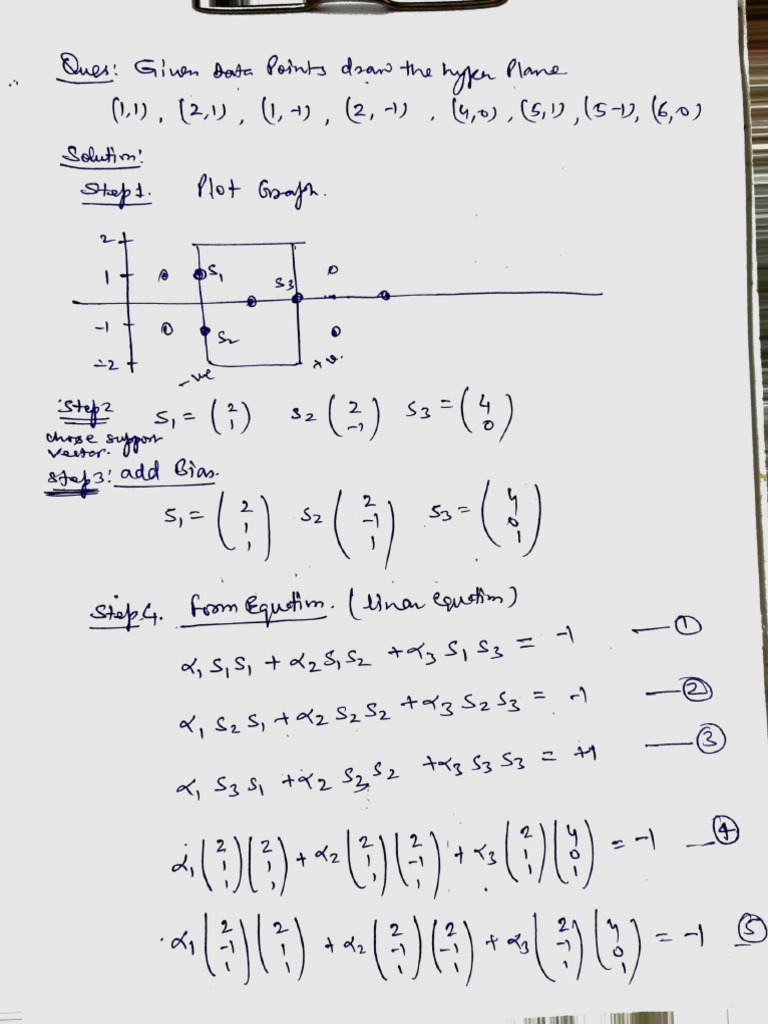 Ques: Given Data Points draw the hyper Plane
(1,1), (2,1), (1,-1), (2,-1), (4,0), (5,1), (5-1), (6,0)
Solution:
Step1. Plot Graph.
2
1 S1 S3
-1 S2
-2
-ve +v.
Step2 S1 = (2 1) S2 (2 -1) S3 = (4 0)
chose support
vector.
Step3: add Bias.
S1 = (2 1 1) S2 (2 -1 1) S3 = (4 0 1)
Step4. Form Equation. (linear equation)
α1 S1 S1 + α2 S1 S2 + α3 S1 S3 = -1 — ①
α1 S2 S1 + α2 S2 S2 + α3 S2 S3 = -1 — ②
α1 S3 S1 + α2 S3 S2 + α3 S3 S3 = +1 — ③
α1 (2 1 1) (2 1 1) + α2 (2 1 1) (2 -1 1) + α3 (2 1 1) (4 0 1) = -1 — ④
α1 (2 -1 1) (2 1 1) + α2 (2 -1 1) (2 -1 1) + α3 (2 -1 1) (4 0 1) = -1 ⑤